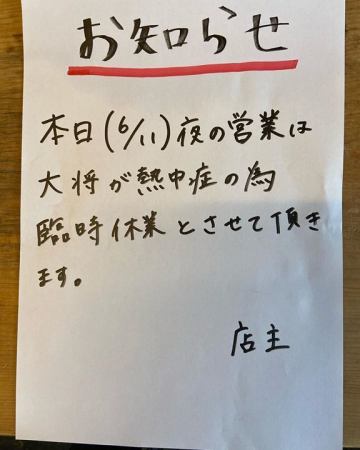 お知らせ
本日(6/11)夜の営業は
大将が熱中症の為
臨時休業とさせて頂き
ます。
店主